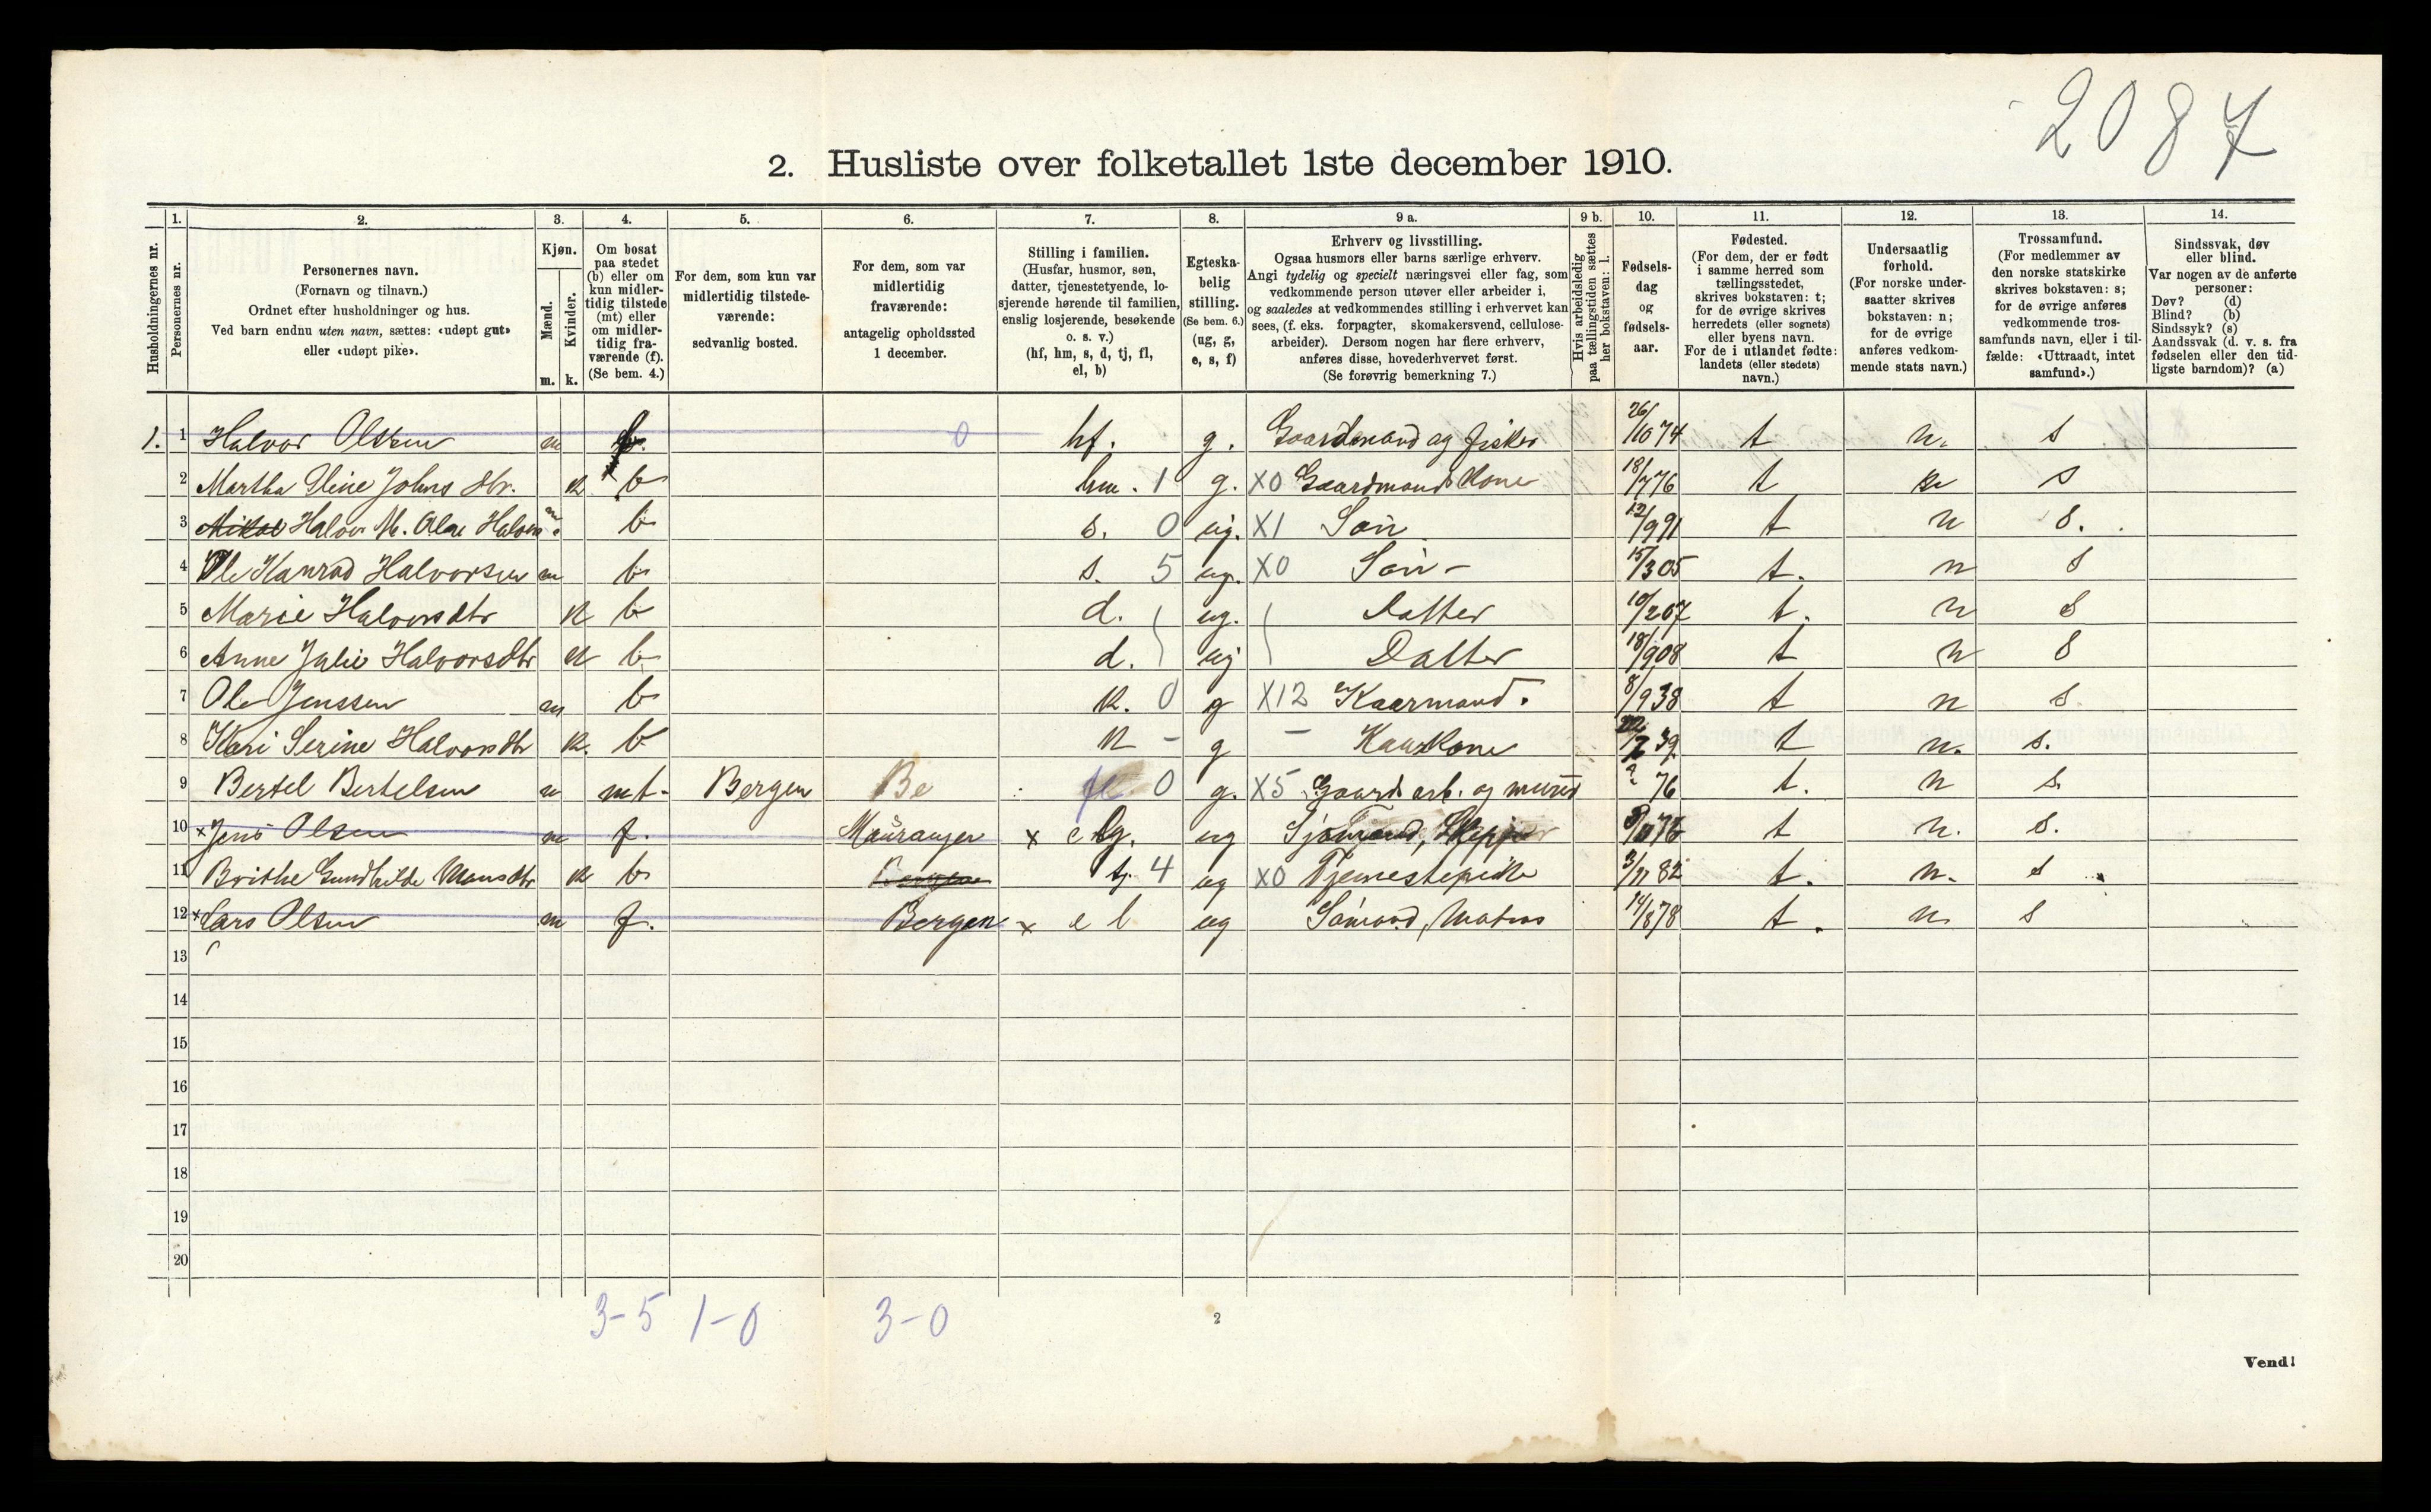 2087
2. Husliste over folketallet 1ste december 1910.
Husholdningernes nr.
1. Personernes nr.
2. Personernes navn.
(Fornavn og tilnavn.)
Ordnet efter husholdninger og hus.
Ved barn endnu uten navn, sættes: «udøpt gut»
eller «udøpt pike».
3. Kjøn.
Mænd. m.
Kvinder. k.
4. Om bosat
paa stedet
(b) eller om
kun midler-
tidig tilstede
(mt) eller
om midler-
tidig fra-
værende (f).
(Se bem. 4.)
5. For dem, som kun var
midlertidig tilstede-
værende:
sedvanlig bosted.
6. For dem, som var
midlertidig
fraværende:
antagelig opholdssted
1 december.
7. Stilling i familien.
(Husfar, husmor, søn,
datter, tjenestetyende, lo-
sjerende hørende til familien,
enslig losjerende, besøkende
o. s. v.)
(hf, hm, s, d, tj, fl,
el, b)
8. Egteska-
belig
stilling.
(Se bem. 6.)
(ug, g,
e, s, f)
9 a. Erhverv og livsstilling.
Ogsaa husmors eller barns særlige erhverv.
Angi tydelig og specielt næringsvei eller fag, som
vedkommende person utøver eller arbeider i,
og saaledes at vedkommendes stilling i erhvervet kan
sees, (f. eks. forpagter, skomakersvend, cellulose-
arbeider). Dersom nogen har flere erhverv,
anføres disse, hovederhvervet først.
(Se forøvrig bemerkning 7.)
9 b. Hvis arbeidsledig
paa tællingstiden sættes
her bokstaven: l.
10. Fødsels-
dag
og
fødsels-
aar.
11. Fødested.
(For dem, der er født
i samme herred som
tællingsstedet,
skrives bokstaven: t;
for de øvrige skrives
herredets (eller sognets)
eller byens navn.
For de i utlandet fødte:
landets (eller stedets)
navn.)
12. Undersaatlig
forhold.
(For norske under-
saatter skrives
bokstaven: n;
for de øvrige
anføres vedkom-
mende stats navn.)
13. Trossamfund.
(For medlemmer av
den norske statskirke
skrives bokstaven: s;
for de øvrige anføres
vedkommende tros-
samfunds navn, eller i til-
fælde: «Uttraadt, intet
samfund».)
14. Sindssvak, døv
eller blind.
Var nogen av de anførte
personer:
Døv? (d)
Blind? (b)
Sindssyk? (s)
Aandssvak (d. v. s. fra
fødselen eller den tid-
ligste barndom)? (a)
1. 1 Halvor Olsen m 0 hf. g. Gaardmand og fisker 26/10 74 t n. s
2 Martha Oline Johns dtr. k b hm. 1 g. X0 Gaardmands Kone 18/7 76 t n s
3 Halvor M. Halvors m. b s. 0 ug. X1 Søn 12/9 91 t n s.
4 Ole Konrad Halvorsen m b s. 5 ug. X0 Søn - 15/3 05 t. n s
5 Marie Halvorsdtr k b d. ug. Datter 10/2 07 t. n s
6 Anne Julie Halvorsdtr k b d. ug Datter 18/9 08 t n s
7 Ole Jenssen m b k. 0 g X12 Kaarmand. 8/9 38 t n s
8 Kari Serine Halvorsdtr k. b k - g - Kaarkone 39 t n. s.
9 Bertel Bertelsen m mt. Bergen Be fl 0 g. X5 Gaards arb. og ? 76 t. n s.
10 x Jens Olsen m f. Mauranger x el. ug Sjømand, Skipper t n. s.
11 Brithe Gundhilde Mansdtr k b Bergen tj. 4 ug X0 Tjenestepike 3/11 82 t. n. s
12 x Lars Olsen m f. Bergen x el ug Sømand, Matros 14/8 78 t. n. s
13
14
15
16
17
18
19
20
3-5 1-0 3-0
2
Vend!